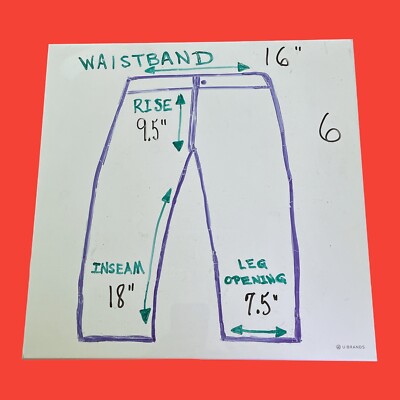 WAISTBAND 16"
RISE
9.5"
6
INSEAM
18"
LEG
OPENING
7.5"
U BRANDS